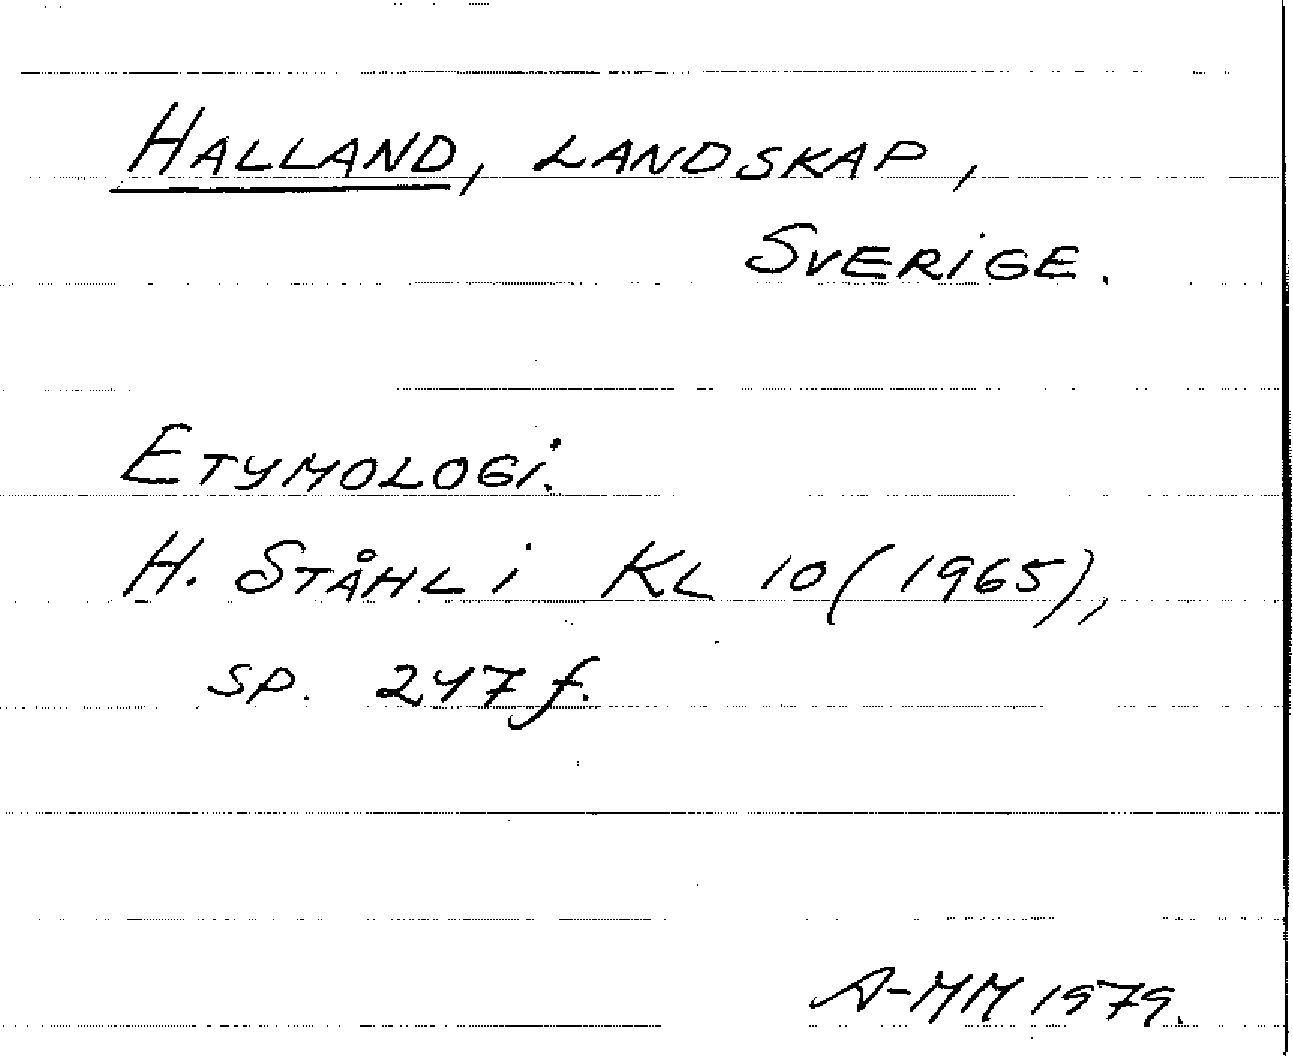 HALLAND, LANDSKAP,
SVERIGE.
ETYMOLOGi.
H. STÅHL i KL 10 (1965),
SP. 247 f.
A-MM 1979.